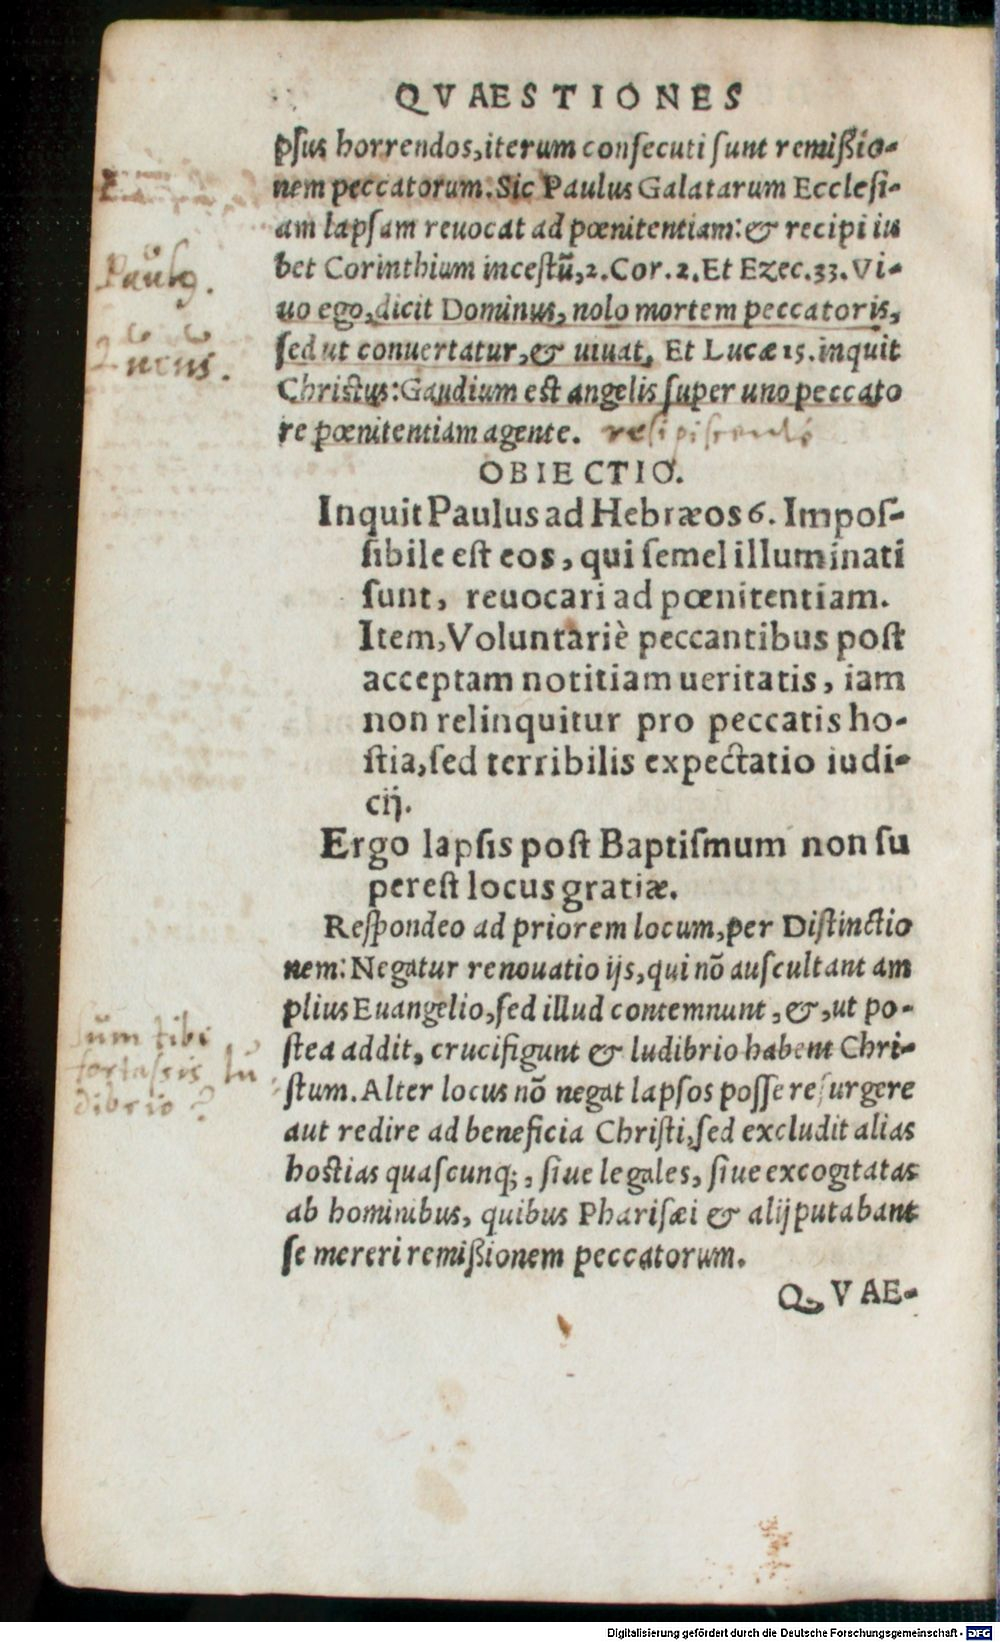 QVAESTIONES
psus horrendos, iterum consecuti sunt remißio-
nem peccatorum. Sic Paulus Galatarum Ecclesi-
am lapsam reuocat ad pœnitentiam: & recipi iu
bet Corinthium incestũ, 2. Cor. 2. Et Ezec. 33. Vi-
uo ego, dicit Dominus, nolo mortem peccatoris,
sed ut conuertatur, & uiuat. Et Lucæ 15. inquit
Christus: Gaudium est angelis super uno peccato
re pœnitentiam agente.
OBIECTIO.
Inquit Paulus ad Hebræos 6. Impos-
sibile est eos, qui semel illuminati
sunt, reuocari ad pœnitentiam.
Item, Voluntariè peccantibus post
acceptam notitiam ueritatis, iam
non relinquitur pro peccatis ho-
stia, sed terribilis expectatio iudi-
cij.
Ergo lapsis post Baptismum non su
perest locus gratiæ.
Respondeo ad priorem locum, per Distinctio
nem: Negatur renouatio ijs, qui nõ auscultant am
plius Euangelio, sed illud contemnunt, &, ut po-
stea addit, crucifigunt & ludibrio habent Chri-
stum. Alter locus nõ negat lapsos posse resurgere
aut redire ad beneficia Christi, sed excludit alias
hostias quascunq;, siue legales, siue excogitatas
ab hominibus, quibus Pharisæi & alij putabant
se mereri remißionem peccatorum.
QVAE-
Paulꝰ.
Lucus.
sum tibi
fortassis lu
dibrio?
Digitalisierung gefördert durch die Deutsche Forschungsgemeinschaft - DFG